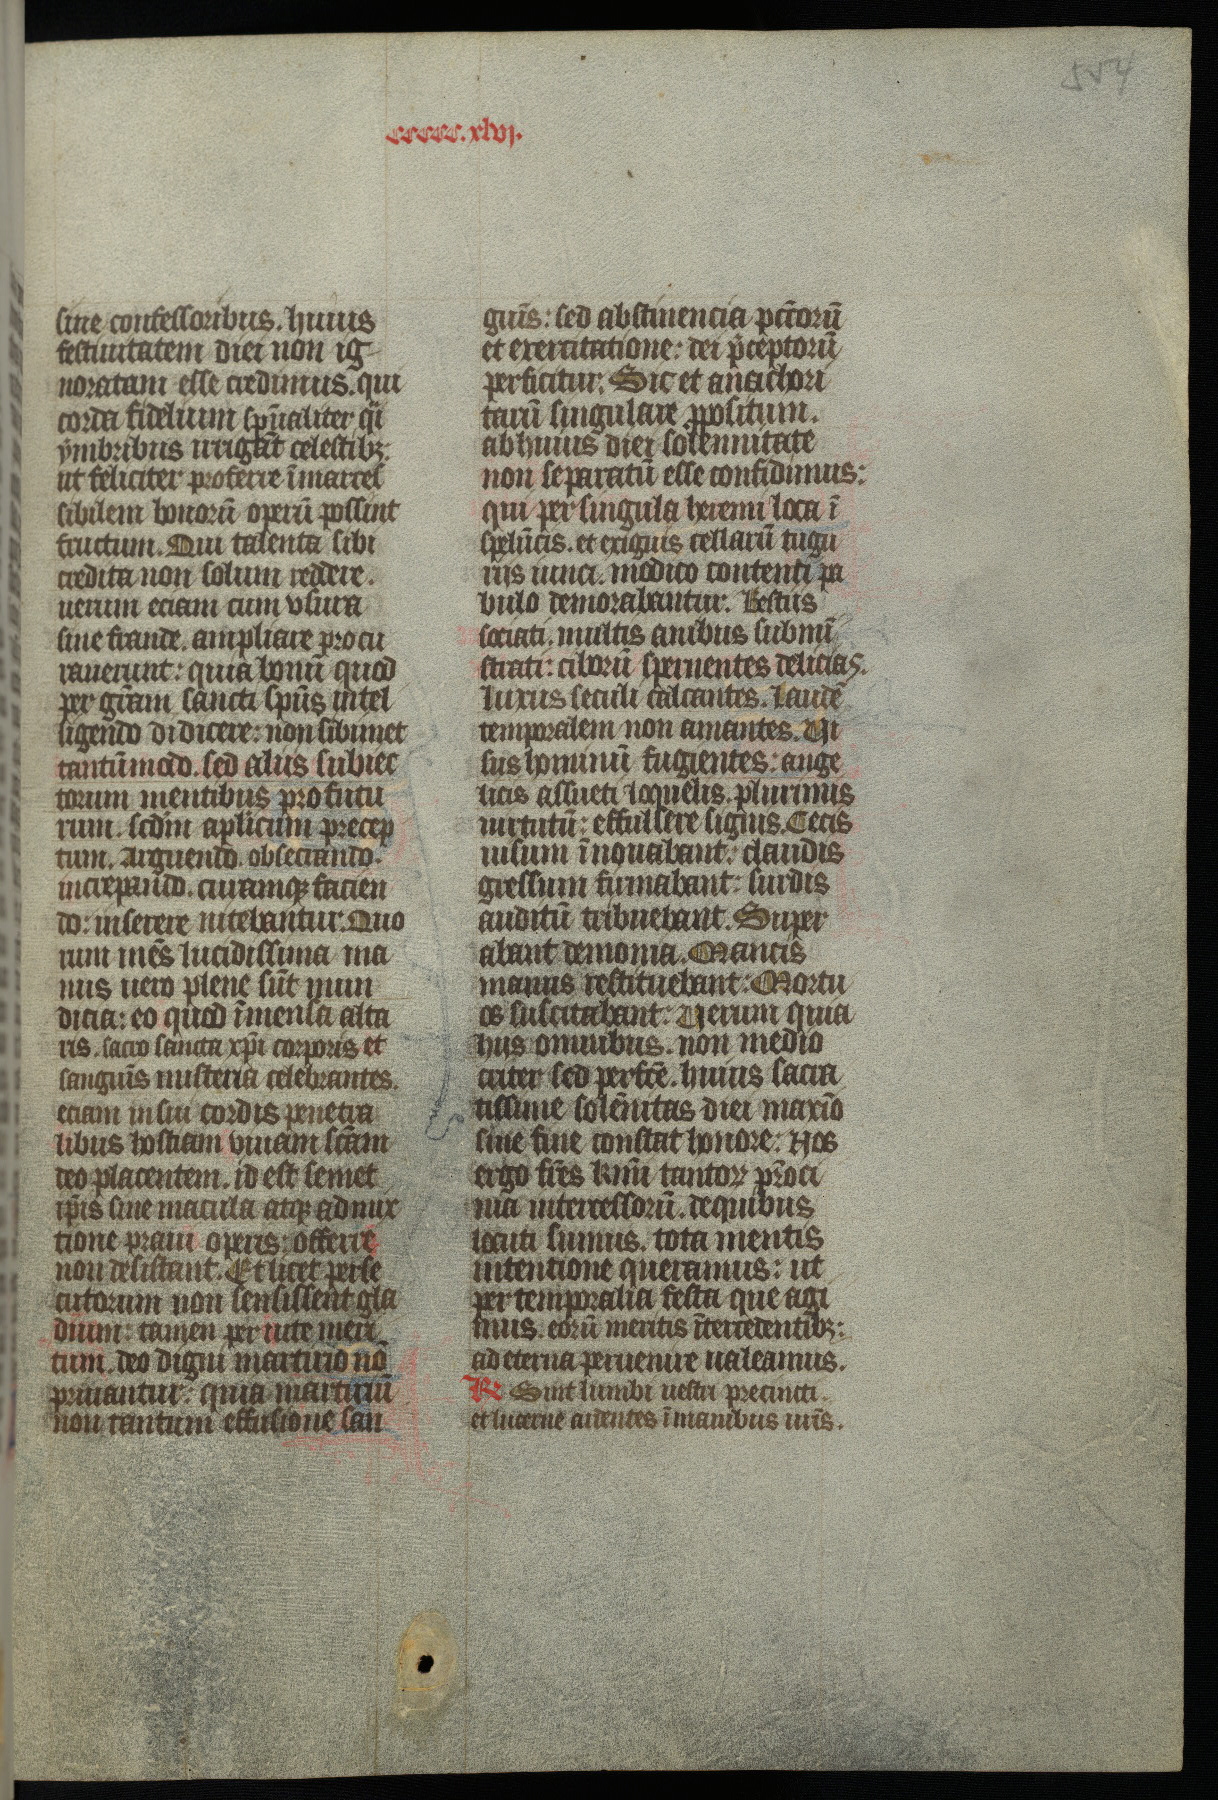 554
ccccc.xlvj.
sine confessoribus. huius
festiuitatem diei non ig-
noratam esse credimus. qui
corda fidelium sp̄ualiter q̄i
ymbribus irrigāt celestibꝫ:
ut feliciter proferre īmarces
sibilem bonorū operū possint
fructum. Qui talenta sibi
credita non solum reddere.
uerum eciam cum vsura
sine fraude. ampliare procu
rauerunt: quia bonū quod
per gr̄am sancti sp̄us intel
ligendo didicere: non sibimet
tantūmodo. sed aliis subiec
torum mentibus profutu
rum. scd̄m ap̄licum precep
tum. Arguendo. obsecrando.
increpando. curamqꝫ facien
do: inserere nitebantur. Quo
rum mēs lucidissima ma
nus uero plene sūt mun
dicia: eo quod īmensa alta
ris. sacro sancta xp̄i corporis et
sanguīs misteria celebrantes.
eciam in sui cordis penetra
libus hostiam viuam sc̄am
deo placentem. id est semet
ip̄is sine macula atqꝫ admix
tione praui operis: offerre
non desistant. Et licet perse
cutorum non sensissent gla
dium: tamen per uite meri
tum. deo digni martirio nō
priuantur: quia martiriū
non tantum effusione san
guīs: sed abstinencia pctōrū
et exercitatione: dei p̄ceptorū
perficitur. Sic et anachori
tarū singulare ꝓpositum.
ab huius diei solennitate
non separatū esse confidimus:
qui per singula heremi loca ī
spelūcis. et exiguis cellarū tugu
riis iuncti. modico contenti pa
bulo demorabantur. Bestiis
sociati. multis auibus submī
strati: ciborū spernentes delicias.
luxus seculi calcantes. Laudē
temporalem non amantes. Vi
sus hominū fugientes: ange
licis assueti loquelis. plurimis
uirtutū: effulsere signis. Cecis
uisum īnouabant: claudis
gressum firmabant: surdis
auditū tribuebant. Super
abant demonia. Mancis
manus restituebant: Mortu
os suscitabant: Verum quia
hiis omnibus. non medio
criter sed perfc̄e. huius sacra
tissime solēnitas diei maxīo
sine fine constat honore: Nos
ergo fr̄es kr̄mi tantorꝝ p̄roci
nia intercessorū. de quibus
locuti sumus. tota mentis
intentione queramus: ut
per temporalia festa que agi
mus. eorū meritis ītercedentibꝫ:
ad eterna peruenire ualeamus.
R̷ Sint lumbi uestri precincti.
et lucerne ardentes ī manibus urīs.